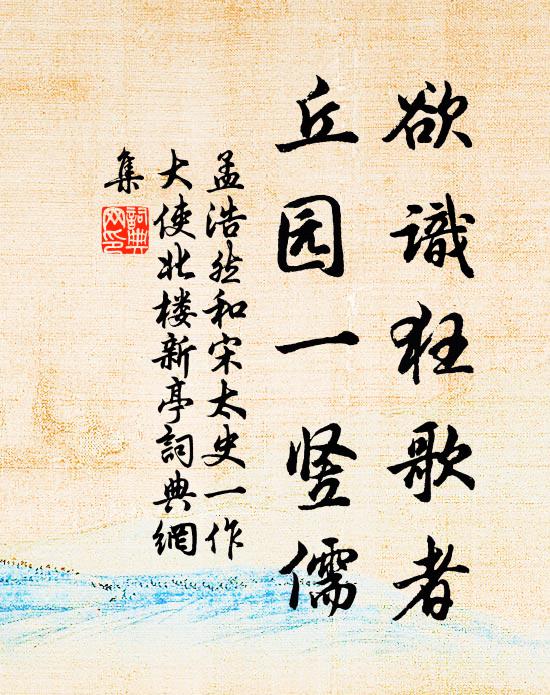 欲識狂歌者
丘园一竖儒
孟浩然和宋太史一作
大使北楼新亭詞典網
集
詞典
网印